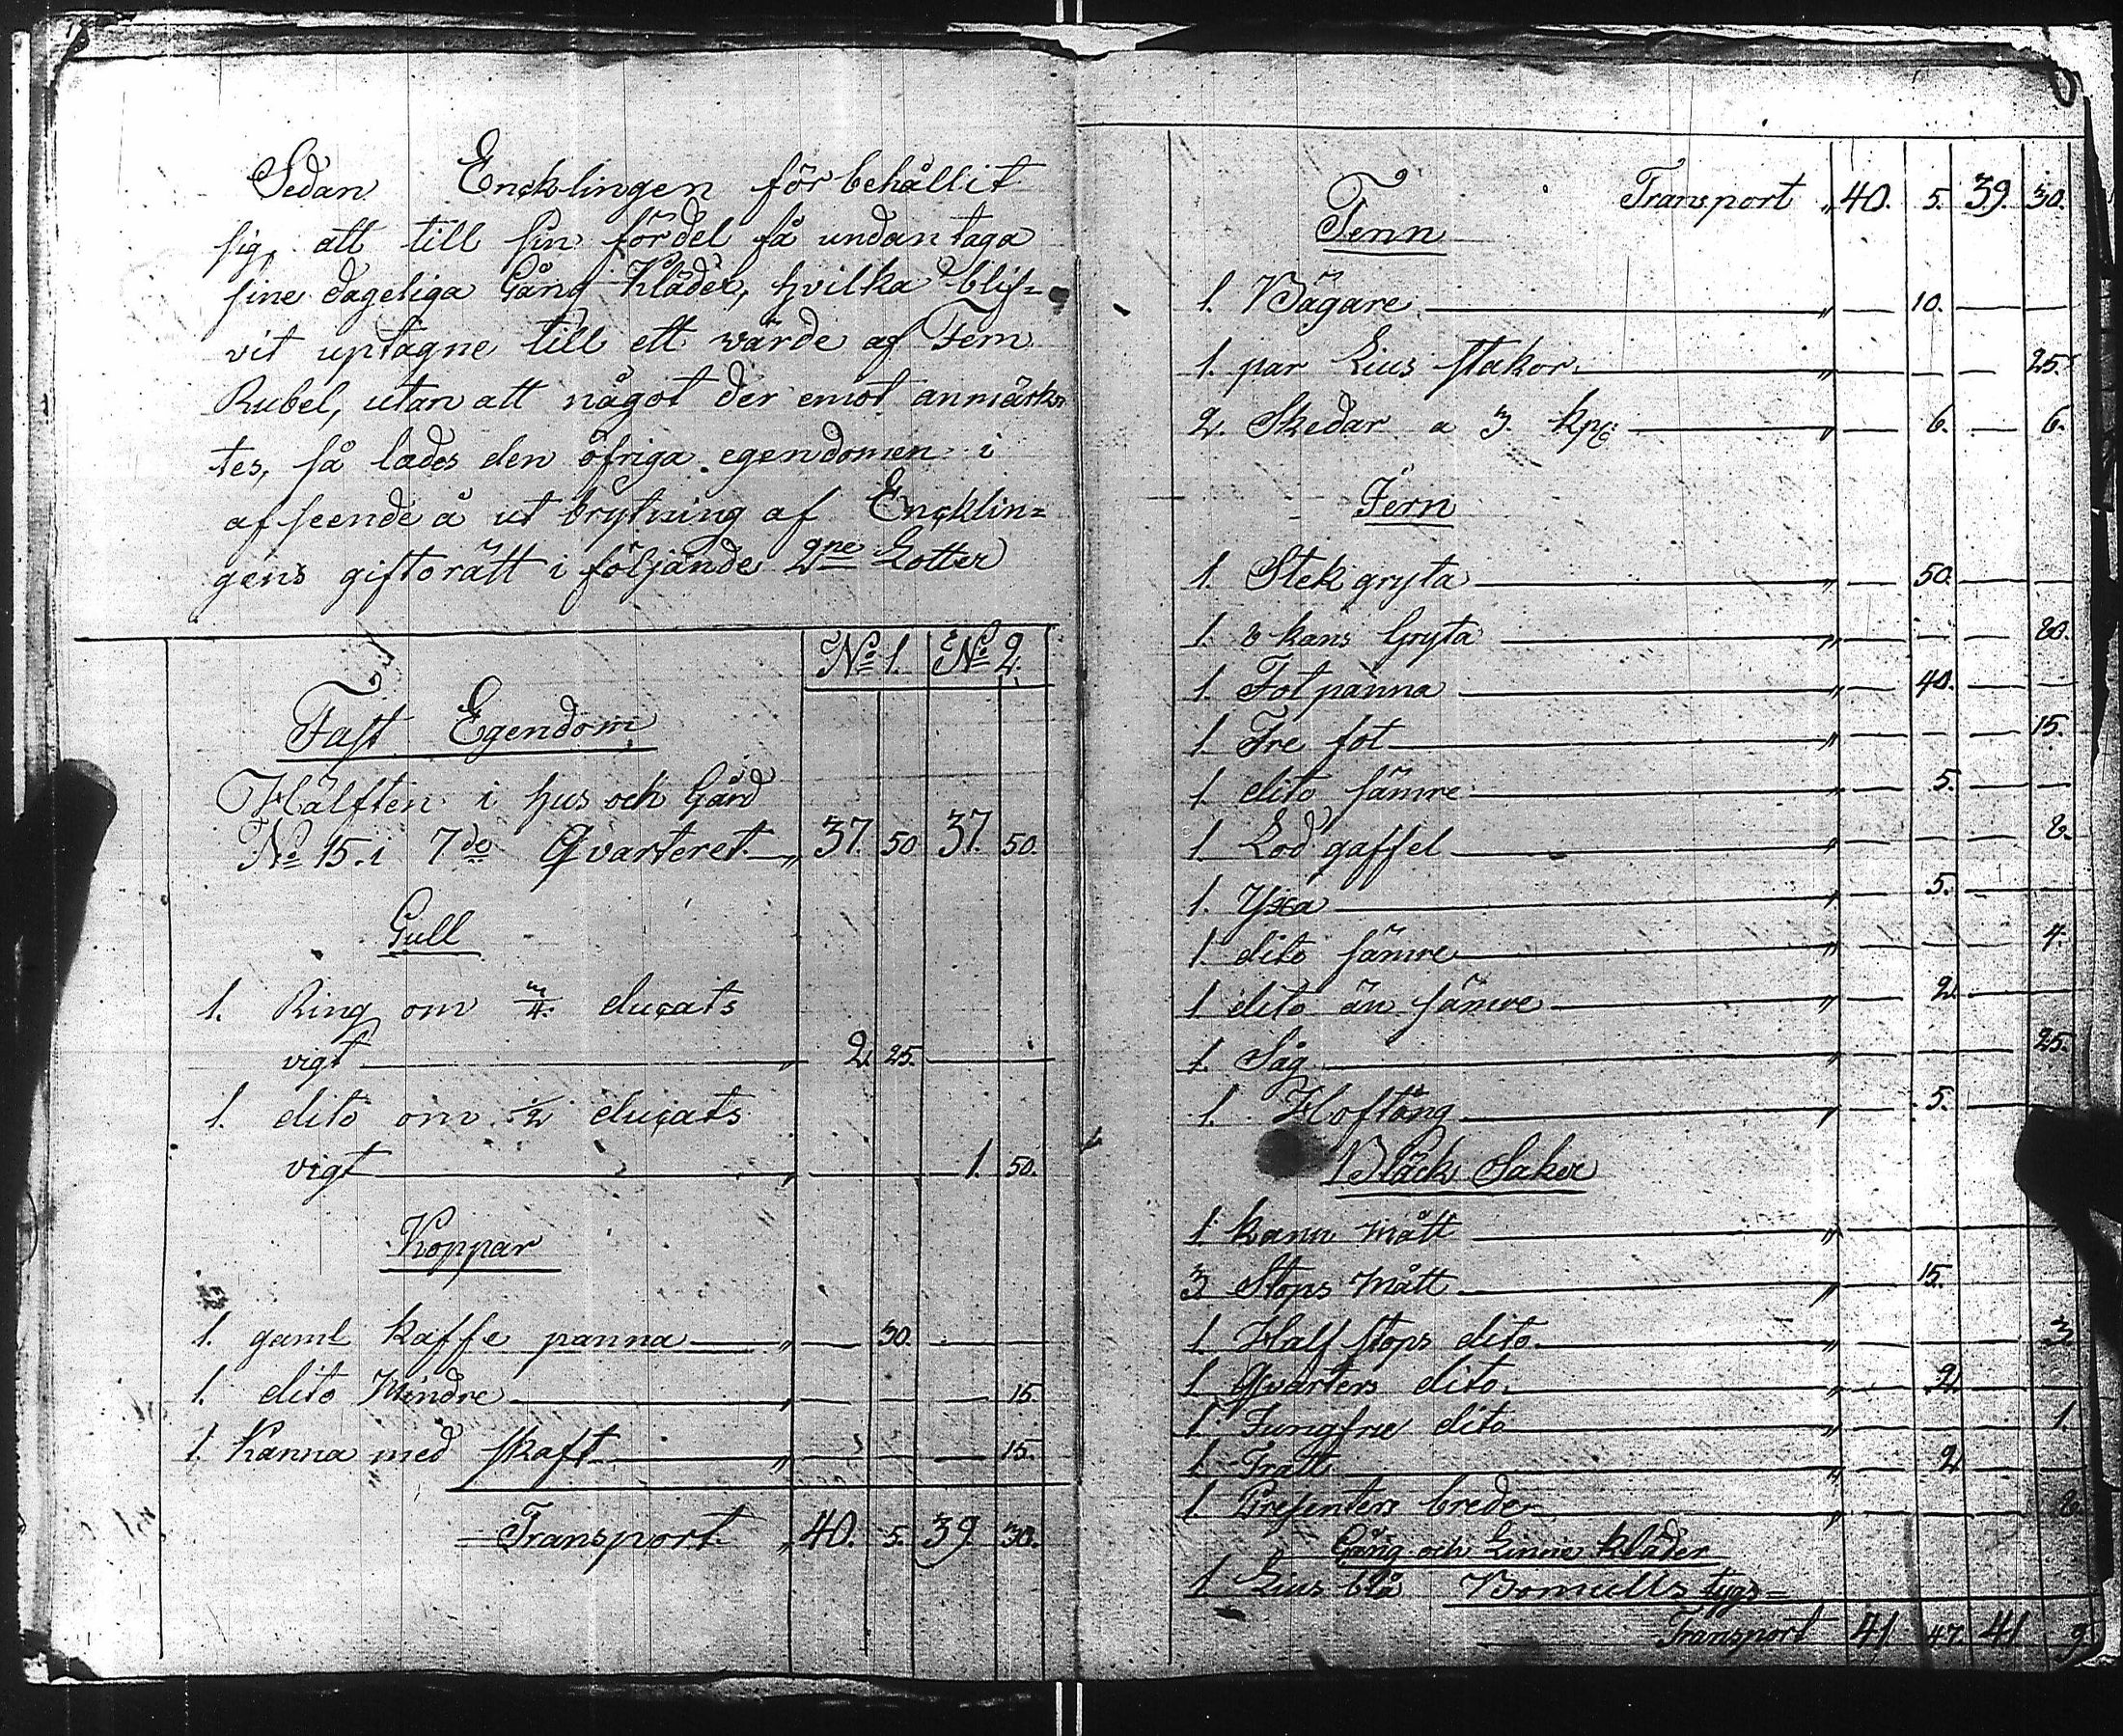 Sedan Encklingen förbehållit
sig, att till sin fördel få undantaga
sine dageliga Gång Kläder, hvilka blif=
vit uptagne till ett värde af Fem
Rubel, utan att något der emot anmärk
tes, så lades den öfriga egendomen i
afseende å ut brytning af Encklin=
gens giftorätt i följande 2ne Lotter
No 1. No 2.
Fast Egendom
Hälften i hus och Gård
No 15. i 7do Qvarteret „ 37. 50 37. 50.
Gull
1. Ring om 3/4 ducats
vigt „ 2. 25. — —
1. dito om 1/2 ducats
vigt „ — — 1. 50.
Koppar
1. gaml kaffe panna „ — 30. — —
1. dito Mindre „ — — — 15.
1. Kanna med skaft „ — — — 15.
Transport „ 40. 5. 39. 30.
Transport „ 40. 5. 39. 30.
Tenn
1. Bägare „ — 10. — —
1. par Lius stakor „ — — — 25.
2. Skedar a 3 kpk „ — 6. — 6.
Jern
1. Stek gryta „ — 50. — —
1. 3 kans Gryta „ — — — 80.
1. Fotpanna „ — 40. — —
1. Tre fot „ — — — 15.
1. dito sämre „ — 5. — —
1. Lod gaffel „ — — — 2.
1. Yxa „ — 5. — —
1 dito sämre „ — — — 4.
1 dito än sämre „ — 2 — —
1. Såg „ — — — 25.
1. Hoftång „ — 5. — —
Bläck Saker
1 kann mått „ — —
3 Stops Mått „ — 15.
1 Half stops dito „ — — — 3
1 Qvarters dito „ — 2 — —
1. Jungfru dito „ — — — 1.
1 Tratt „ — 2 — —
1. Presenter breder „ — — —
Gång och Linne kläder
1 Lius blå Bomulls tygs=
Transport 41 47. 41 9